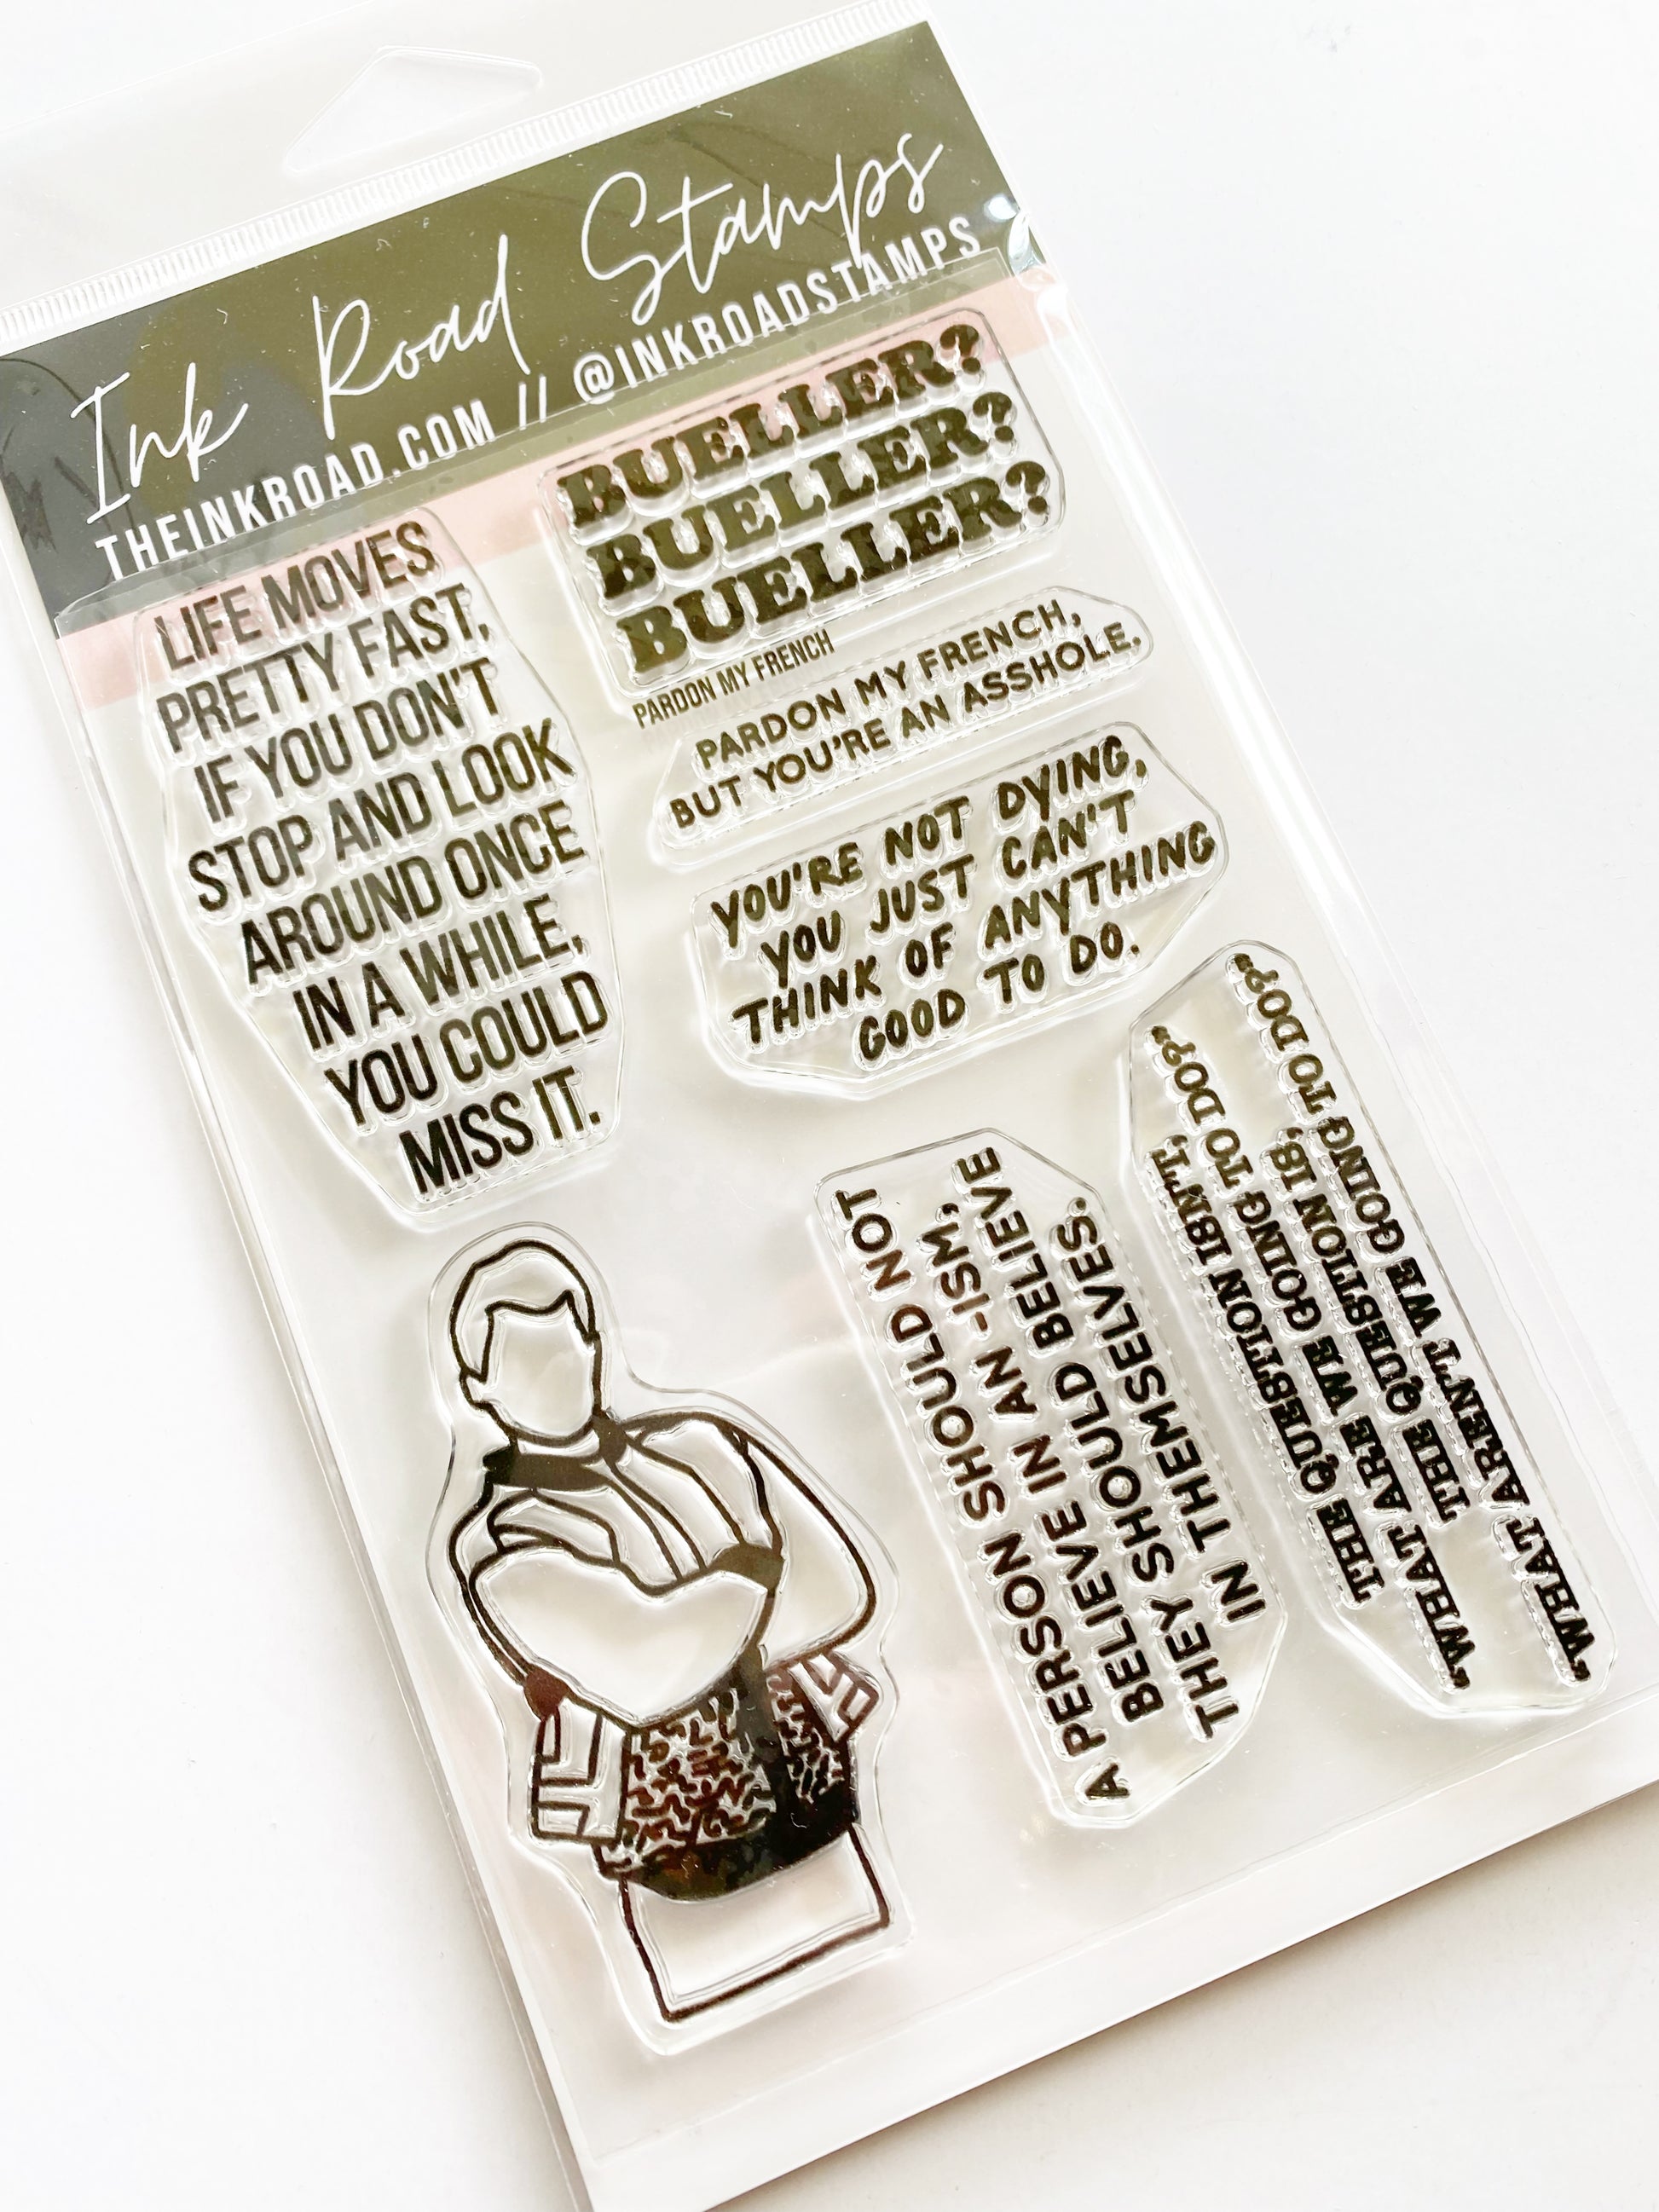 Ink Road Stamps
THEINKROAD.COM // @INKROADSTAMPS
LIFE MOVES
PRETTY FAST,
IF YOU DON'T
STOP AND LOOK
AROUND ONCE
IN A WHILE,
YOU COULD
MISS IT.
BUELLER?
BUELLER?
BUELLER?
PARDON MY FRENCH
PARDON MY FRENCH,
BUT YOU'RE AN ASSHOLE.
YOU'RE NOT DYING,
YOU JUST CAN'T
THINK OF ANYTHING
GOOD TO DO.
A PERSON SHOULD NOT
BELIEVE IN AN -ISM,
THEY SHOULD BELIEVE
IN THEMSELVES.
THE QUESTION ISN'T,
"WHAT ARE WE GOING TO DO?"
THE QUESTION IS,
"WHAT AREN'T WE GOING TO DO?"